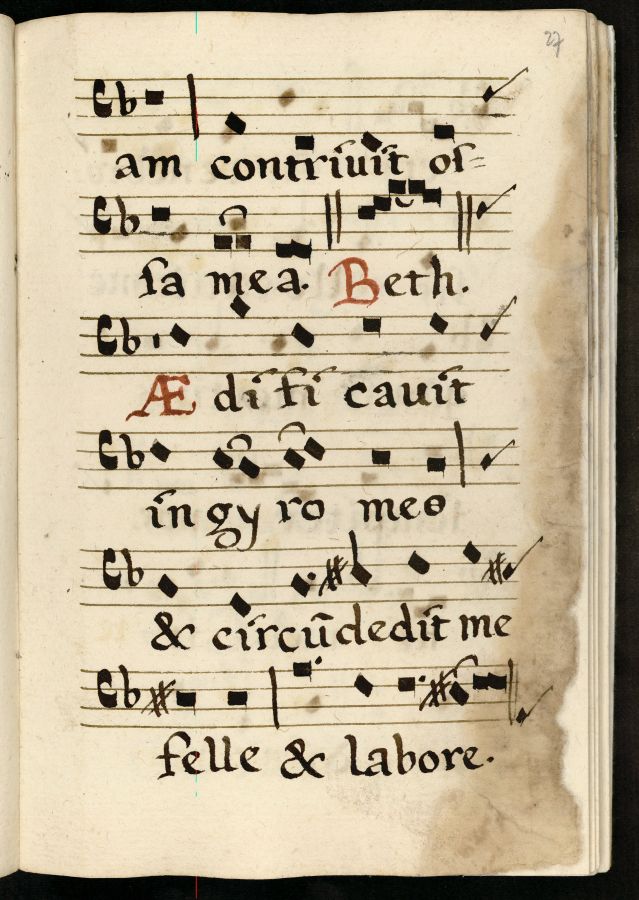 27
am contrivit oſ=
ſa mea. Beth.
Ædifi cavit
in gyro meo
& circūdedit me
felle & labore.